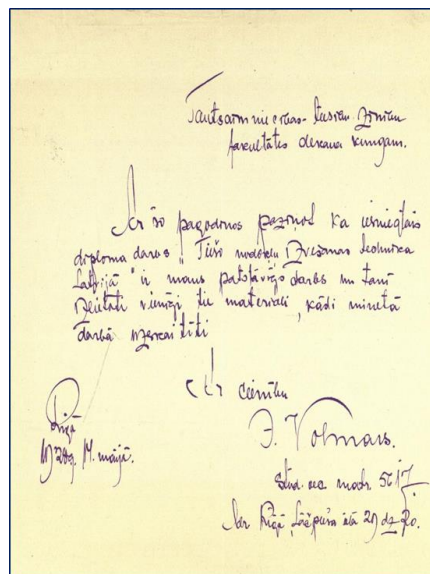 Tautsaimniecības-tiesību Zinātņu
fakultātes dekana kungam.
Ar šo pagodinos paziņot ka iesniegtais
diploma darbs "Tiešo nodokļu technika
Latvijā" ir mans patstāvīgs darbs un tanī
lietāti vienīgi tie materiali, kādi minētā
darbā uzskaitīti
Ar cieņu
J. Volmars.
Rīgā
14. maijā.
stud. oec. matr. 5617.
Adr. Rīgā, Lāčplēša ielā 29 dz 20.